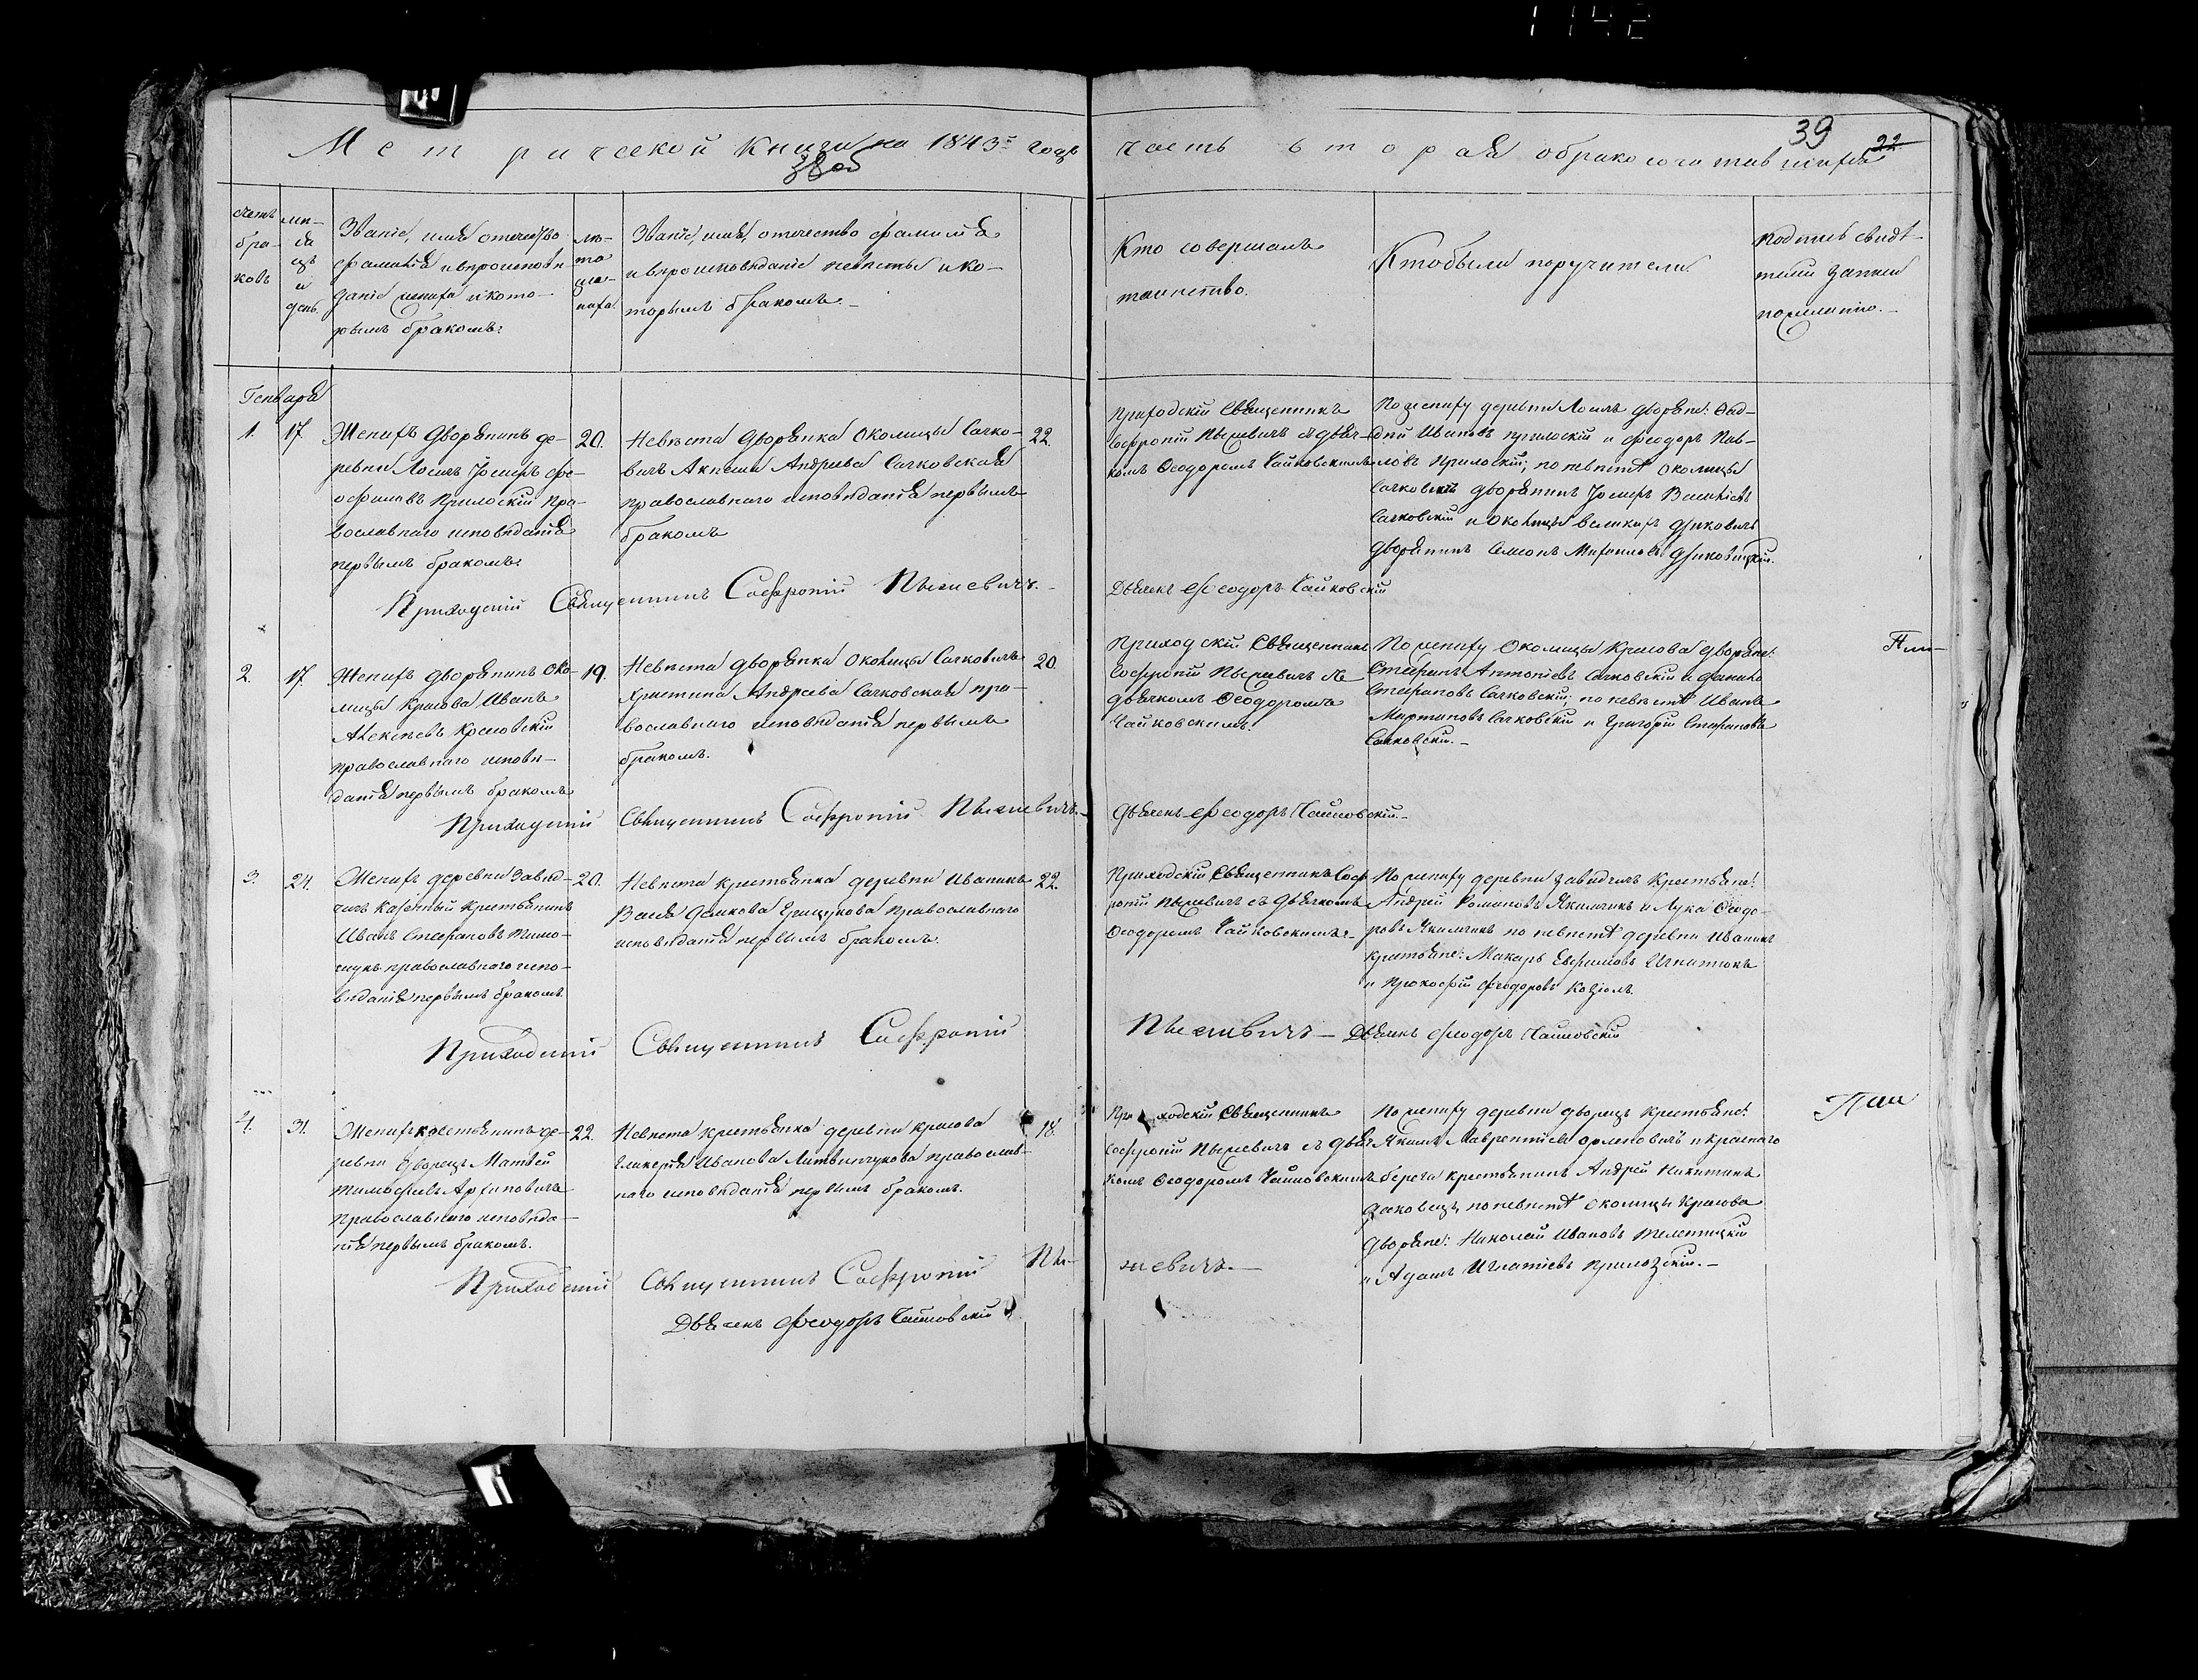 1142
Метрической книги на 1843й годъ
38 об
часть вторая о бракосочетавшихся
39
22
счетъ бра-ковъ
мѣ-ся цъ и день.
Званіе, имя отечество
фамилія и вѣроисповѣ-
даніе жениха и кото-
рымъ бракомъ:
лѣ-та же-ниха.
Званіе, имя, отечество фамилія
и вѣроисповѣданіе невѣсты и ко-
торымъ бракомъ. -
Кто совершалъ
таинство.
Кто были поручители.
подпись свидѣ-
телей записи
по желанію. -
Генваря
1. 17.
Женихъ дворянинъ де-
ревни Лосичъ Іосифъ Фе-
офиловъ Прилоскій пра-
вославнаго исповѣданія
первымъ бракомъ:
20.
Невѣста дворянка околицы Сачко-
вичъ Акилина Андреева Сачковская
православнаго исповѣданія первымъ
бракомъ
22.
Приходскій Священникъ
Софроній Пыжевичъ съ дьяч-
комъ Ѳеодоромъ Чайковскимъ
По жениху деревни Лосичъ дворяне: Фад-
дей Ивановъ Прилоскій и Феодоръ Пав-
ловъ Прилоскій; по невѣстѣ околицы
Сачковичъ дворянинъ Іосифъ Васильевъ
Сачковскій и околицы Великихъ Диковичъ
дворянинъ Симеонъ Михаиловъ Диковицкій.
Приходскій Священникъ Софроній Пыжевичъ. -
Дьячекъ Феодоръ Чайковскій
2. 17.
Женихъ дворянинъ око-
лицы Красова Иванъ
Алексѣевъ Красовскій
православнаго исповѣ-
данія первымъ бракомъ
19.
Невѣста дворянка околицы Сачковичъ
Христина Андреева Сачковская пра-
вославнаго исповѣданія первымъ
бракомъ.
20
Приходскій Священникъ
Софроній Пыжевичъ съ
дьячкомъ Ѳеодоромъ
Чайковскимъ.
По жениху околицы Красова дворяне:
Стефанъ Антоніевъ Сачковскій и Данило
Стефановъ Сачковскій; по невѣстѣ Иванъ
Мартиновъ Сачковскій и Григорій Стефановъ
Сачковскій. -
Приходскій Священникъ Софроній Пыжевичъ. -
Дьячекъ Феодоръ Чайковскій. -
3. 24.
Женихъ деревни Завид-
чичъ казенный крестьянинъ
Иванъ Стефановъ Тимо-
щукъ православнаго испо-
вѣданія первымъ бракомъ.
20.
Невѣста крестьянка деревни Иваникъ
Васса Демкова Грицукова православнаго
исповѣданія первымъ бракомъ.
22.
Приходскій Священникъ Соф-
роній Пыжевичъ съ дьячкомъ
Ѳеодоромъ Чайковскимъ. -
По жениху деревни Завидчичъ крестьяне:
Андрей Романовъ Якимчикъ и Лука Ѳеодо-
ровъ Якимчикъ по невѣстѣ деревни Иваникъ
крестьяне: Макаръ Евфимовъ Игнатюкъ
и Прокофій Феодоровъ Козіолъ.
Приходскій Священникъ Софроній Пыжевичъ - Дьячекъ Феодоръ Чайковскій
4. 31.
Женихъ крестьянинъ де-
ревни Дворецъ Матвей
Тимофеевъ Архиповичъ
православнаго исповѣда-
нія первымъ бракомъ.
22.
Невѣста крестьянка деревни Красова
Гликерія Иванова Литвинчукова православ-
наго исповѣданія первымъ бракомъ.
18.
Приходскій Священникъ
Софроній Пыжевичъ съ дьяч-
комъ Ѳеодоромъ Чайковскимъ
По жениху деревни Дворецъ крестьяне:
Якимъ Лаврентіевъ и Краснаго
берега крестьянинъ Андрей Никитинъ
по невѣстѣ околицы Красова
дворяне: Николай Ивановъ Телепицкій
и Адамъ Игнатіевъ Прилозскій. -
Приходскій Священникъ Софроній Пы-
жевичъ. -
Дьячекъ Феодоръ Чайковскій